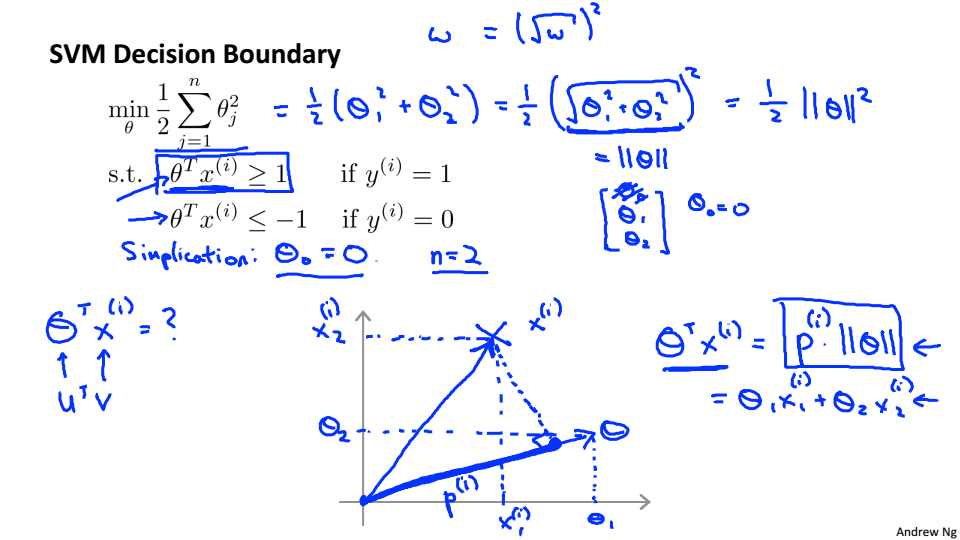 ω = (√ω)²
SVM Decision Boundary
min_θ 1/2 ∑_{j=1}^{n} θ_j² = 1/2 (θ₁² + θ₂²) = 1/2 (√(θ₁² + θ₂²))² = 1/2 ||θ||²
= ||θ||
s.t. θᵀx⁽ⁱ⁾ ≥ 1 if y⁽ⁱ⁾ = 1
→ θᵀx⁽ⁱ⁾ ≤ −1 if y⁽ⁱ⁾ = 0
[θ₀ θ₁ θ₂] θ₀ = 0
Simplication: θ₀ = 0. n = 2
θᵀx⁽ⁱ⁾ = ?
↑ ↑
uᵀv
x₂⁽ⁱ⁾
x⁽ⁱ⁾
θ₂
θ
p⁽ⁱ⁾
x₁⁽ⁱ⁾
θ₁
θᵀx⁽ⁱ⁾ = p⁽ⁱ⁾ · ||θ|| ←
= θ₁x₁⁽ⁱ⁾ + θ₂x₂⁽ⁱ⁾ ←
Andrew Ng